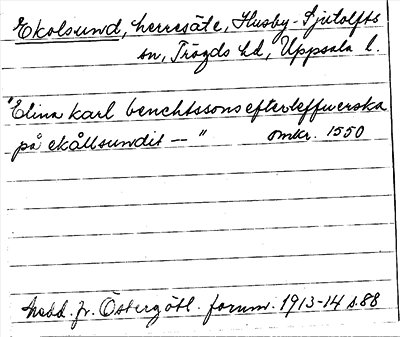 Ekolsund, herresäte, Husby-Sjutolfts
sn, Trögds hd, Uppsala l.
"Elina karl benchtssons efterleffuerska
på ekållsundit -- " omkr. 1550
Medd. fr. Östergötl. fornm. 1913-14 s. 88